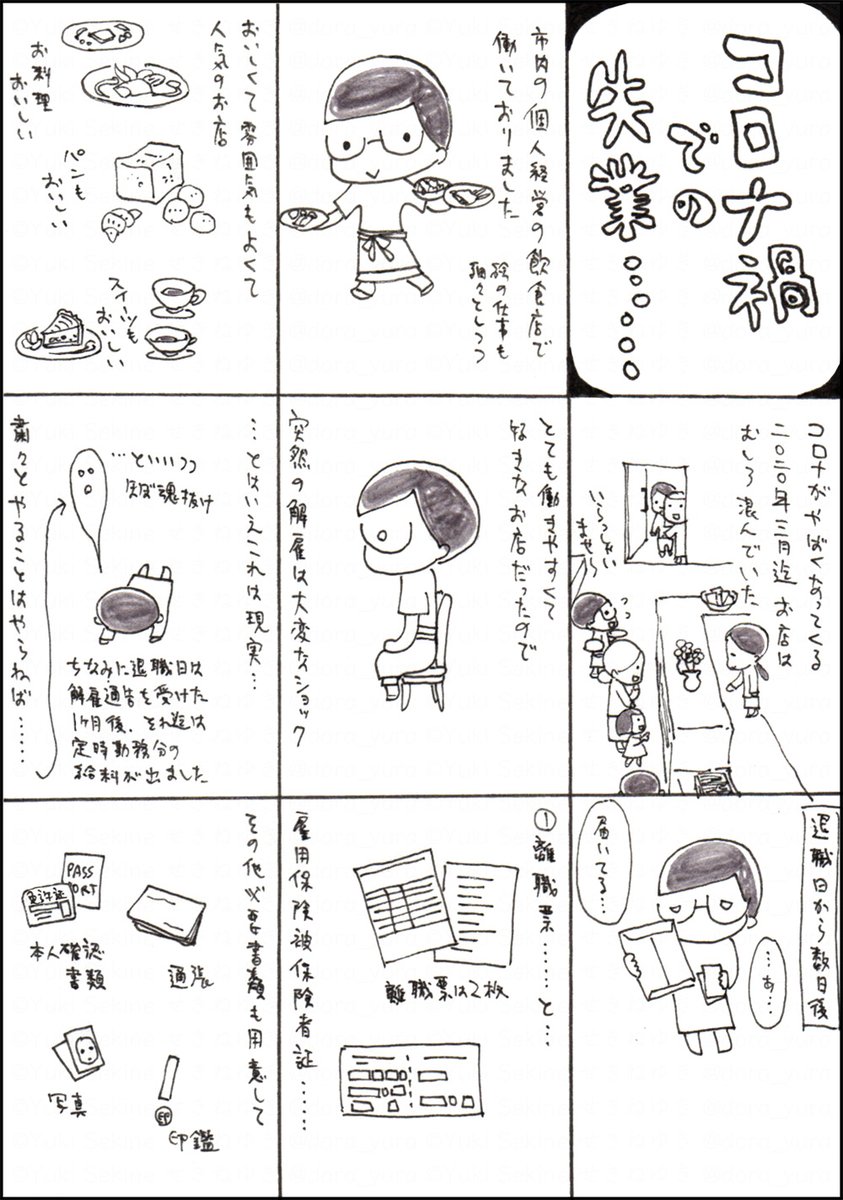 コロナ禍
での
失業……
市内の個人経営の飲食店で
働いておりました
絵の仕事も
細々としつつ
おいしくて雰囲気もよくて
人気のお店
お料理
おいしい
パンも
おいしい
スイーツも
おいしい
コロナがやばくなってくる
二〇二〇年三月迄お店は
むしろ混んでいた
いらっしゃい
ませ〜
とても働きやすくて
好きなお店だったので
突然の解雇は大変なショック
…とはいえこれは現実…
…といいつつ
ほぼ魂抜け
ちなみに退職日は
解雇通告を受けた
1ヶ月後、それ迄は
定時勤務分の
給料が出ました
粛々とやることはやらねば……
退職日から数日後
…あ…
届いてる…
①離職票……と…
離職票は2枚
雇用保険被保険者証……
その他必要書類も用意して
PASS
PORT
免許証
本人確認
書類
通帳
写真
印
印鑑